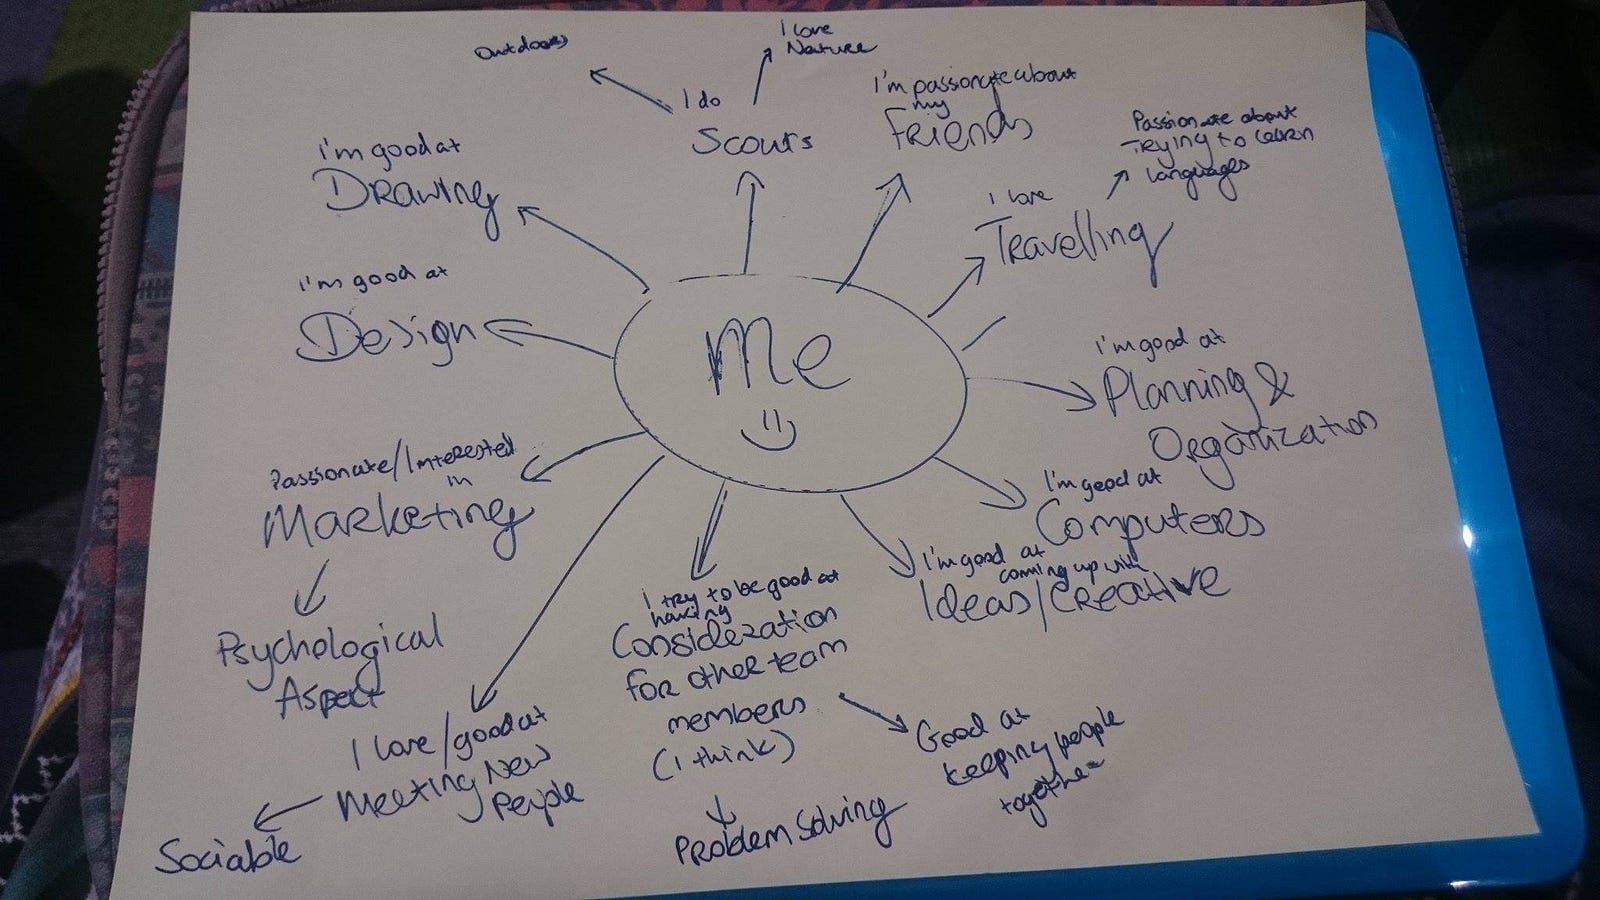 Me
I do
Scouts
Outdoors
I love
Nature
I'm passionate about
my
Friends
I love
Travelling
Passionate about
Trying to learn
languages
I'm good at
Planning &
Organization
I'm good at
Computers
I'm good at
coming up with
Ideas/Creative
I try to be good at
having
Consideration
for other team
members
(I think)
Good at
keeping people
together
Problem Solving
I love/good at
Meeting New
People
Sociable
Passionate/Interested
in
Marketing
Psychological
Aspect
i'm good at
Design
i'm good at
Drawing